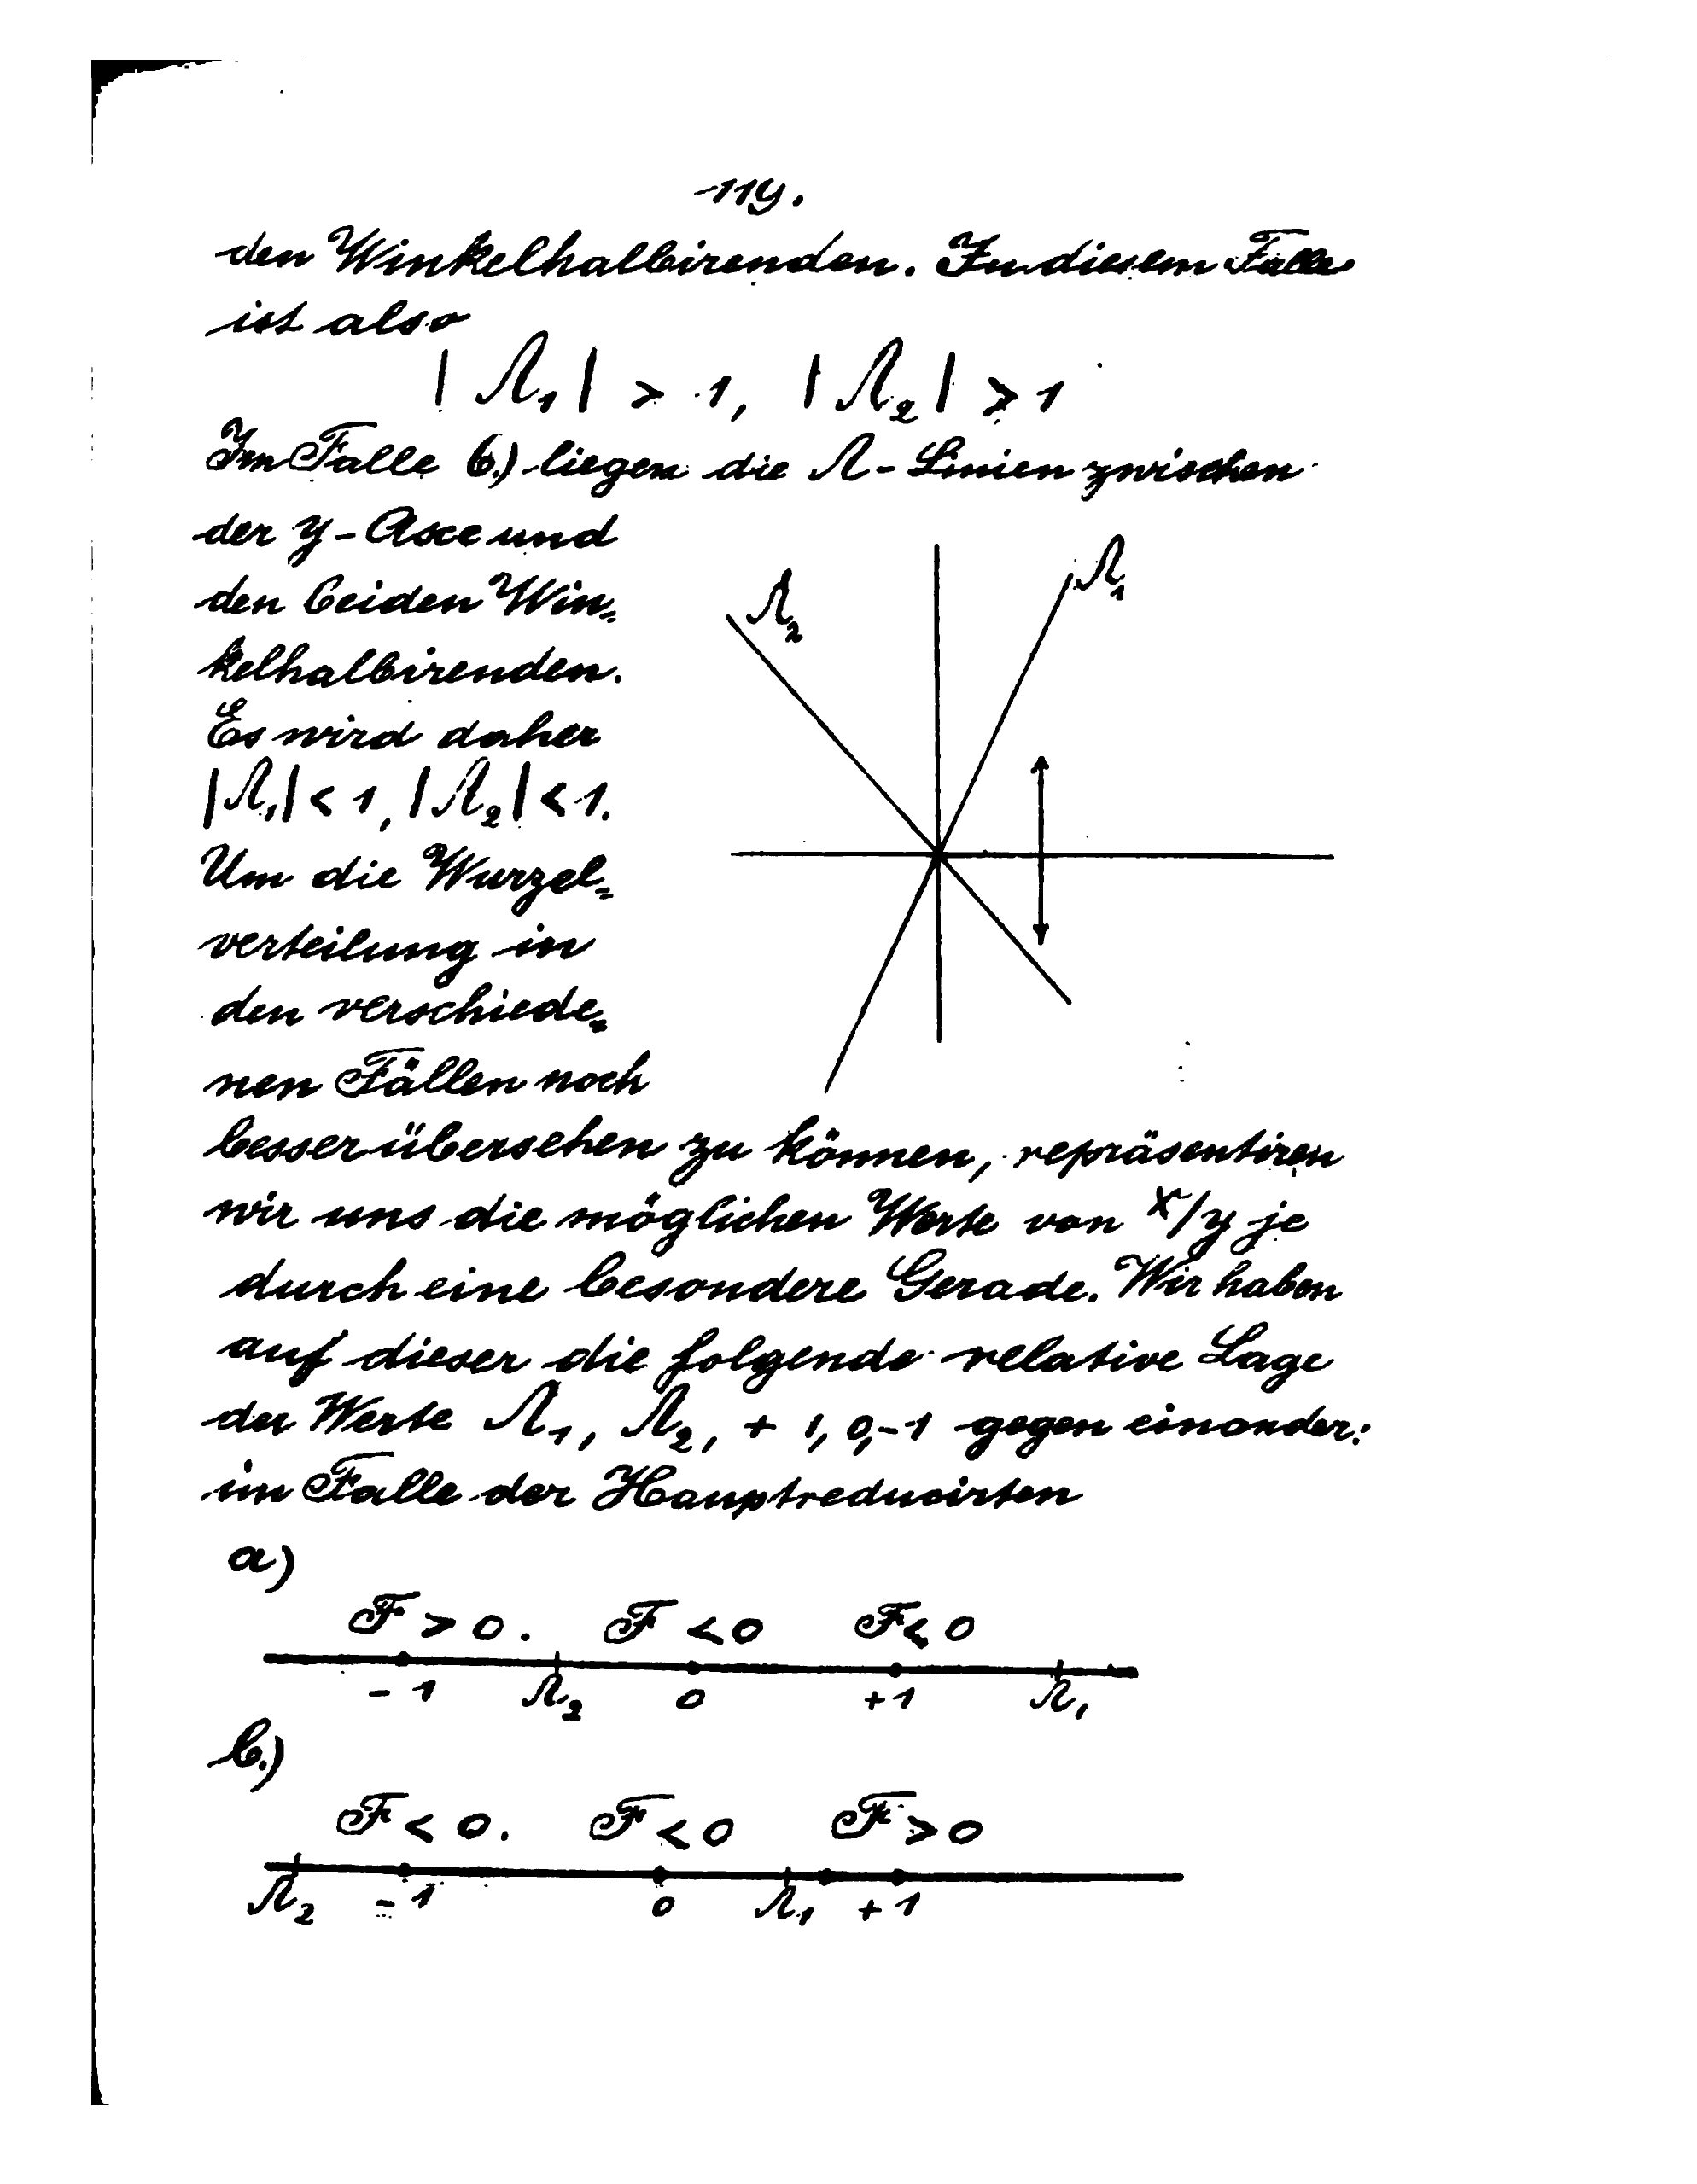 119.
den Winkelhalbirenden. In diesem Falle
ist also
| Λ₁ | > 1, | Λ₂ | > 1
Im Falle b.) liegen die Λ - Linien zwischen
der y - Axe und
den beiden Win=
kelhalbirenden.
Es wird daher
|Λ₁| < 1, |Λ₂| < 1.
Um die Wurzel=
verteilung in
den verschiede=
nen Fällen noch
Λ₂ Λ₁
besser übersehen zu können, repräsentiren
wir uns die möglichen Werte von x/y je
durch eine besondere Gerade. Wir haben
auf dieser die folgende relative Lage
der Werte Λ₁, Λ₂, + 1, 0, -1 gegen einander:
im Falle der Hauptreducirten
a)
F > 0. F < 0 F < 0
- 1 Λ₂ 0 +1 Λ₁
b.)
F < 0. F < 0 F > 0
Λ₂ - 1 0 Λ₁ + 1